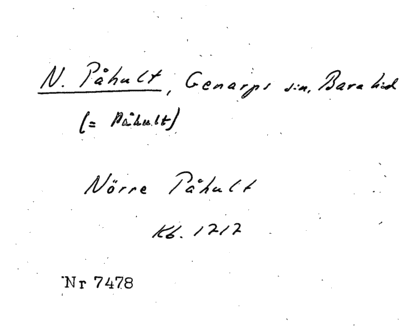 N. Påhult, Genarps sn, Bara hd
(= Påhult)
Nörre Påhult
Kb. 1712
Nr 7478